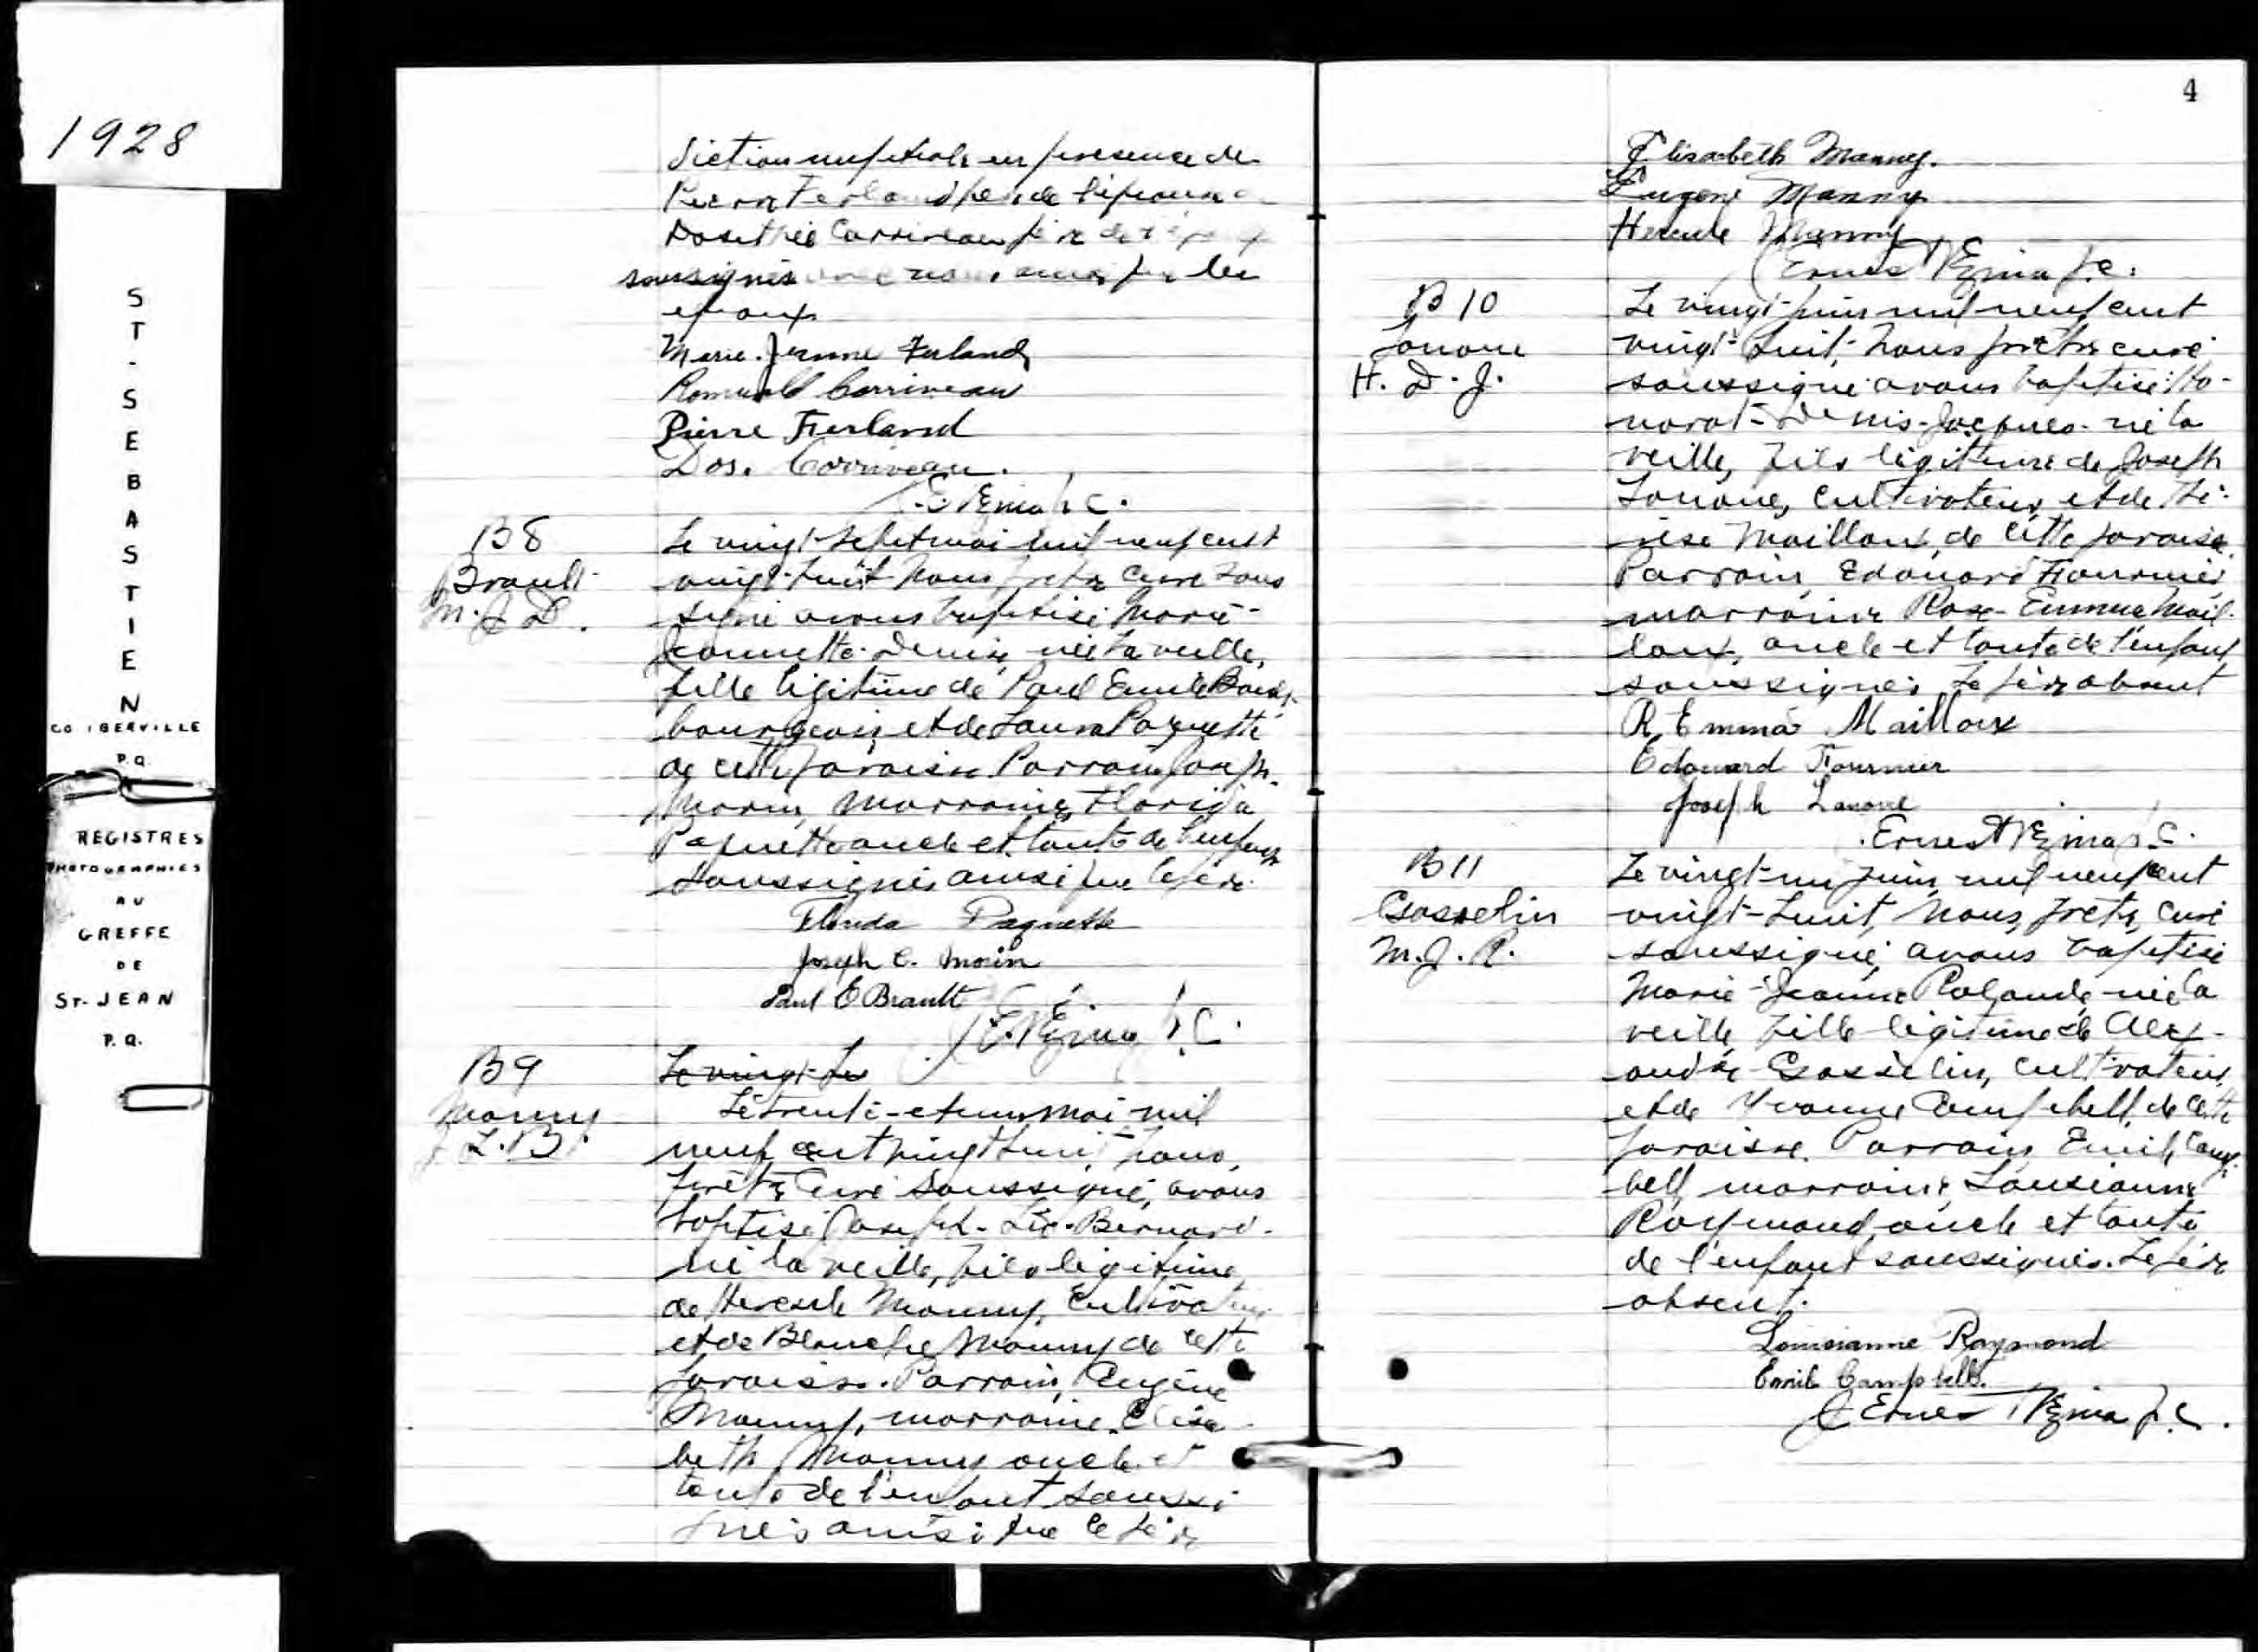 1928
ST-SEBASTIEN
CO IBERVILLE
P.Q.
REGISTRES
PHOTOGRAPHIES
AU
GREFFE
DE
ST-JEAN
P.Q.
diction nuptiale en présence de
Pierre Ferland père de l'épouse
Dosithée Corriveau père de
soussignés nous ainsi que les
époux
Marie-Jeanne Ferland
Romuald Corriveau
Pierre Ferland
Dos. Corriveau.
B8
Brault
M. J. D.
Le vingt-sept mai mil neuf cent
vingt-huit nous prêtre curé sous
signé avons baptisé Marie-
Jeannette-Denise née la veille,
fille légitime de Paul Emile
bourgeois et de Laura Paquette
de cette paroisse Parrain Joseph
Morin, marraine Florida
Paquette oncle et tante de l'enfant
soussignés ainsi que le père.
Florida Paquette
Joseph C. Morin
Paul E Brault
B9
Manny
J. L. B.
Le vingt-hu
Le trente-et-un mai mil
neuf cent vingt huit, nous,
prêtre curé soussigné, avons
baptisé Joseph-Léo-Bernard-
né la veille, fils légitime
de Hercule Manny, cultivateur
et de Blanche Manny de cette
paroisse. Parrain, Eugène
Manny, marraine Elisa-
beth Manny oncle et
tante de l'enfant soussi
gnés ainsi que le père
4
Elisabeth Manny.
Eugène Manny
Hercule Manny
B10
Lanoue
H. D. J.
Le vingt juin mil neuf cent
vingt-huit, nous prêtre curé
soussigné avons baptisé Ho-
norat-Denis-Jacques né la
veille, fils légitime de Joseph
Lanoue, cultivateur et de Thé-
rèse Mailloux, de cette paroisse.
Parrain, Edouard Fournier
marraine Rose-Emma Mail-
loux, oncle et tante de l'enfant
soussignés. Le père absent
R. Emma Mailloux
Edouard Fournier
Joseph Lanoue
B11
Gosselin
M. J. R.
Le vingt-un juin mil neuf cent
vingt-huit, nous, prêtre, curé
soussigné, avons baptisé
Marie-Jeanne Rolande née la
veille, fille légitime de Alex-
andre Gosselin, cultivateur
et de Yvonne Campbell, de cette
paroisse. Parrain Emile Camp-
bell, marraine Louisianne
Raymond, oncle et tante
de l'enfant soussignés. Le père
absent.
Louisianne Raymond
Emile Campbell.